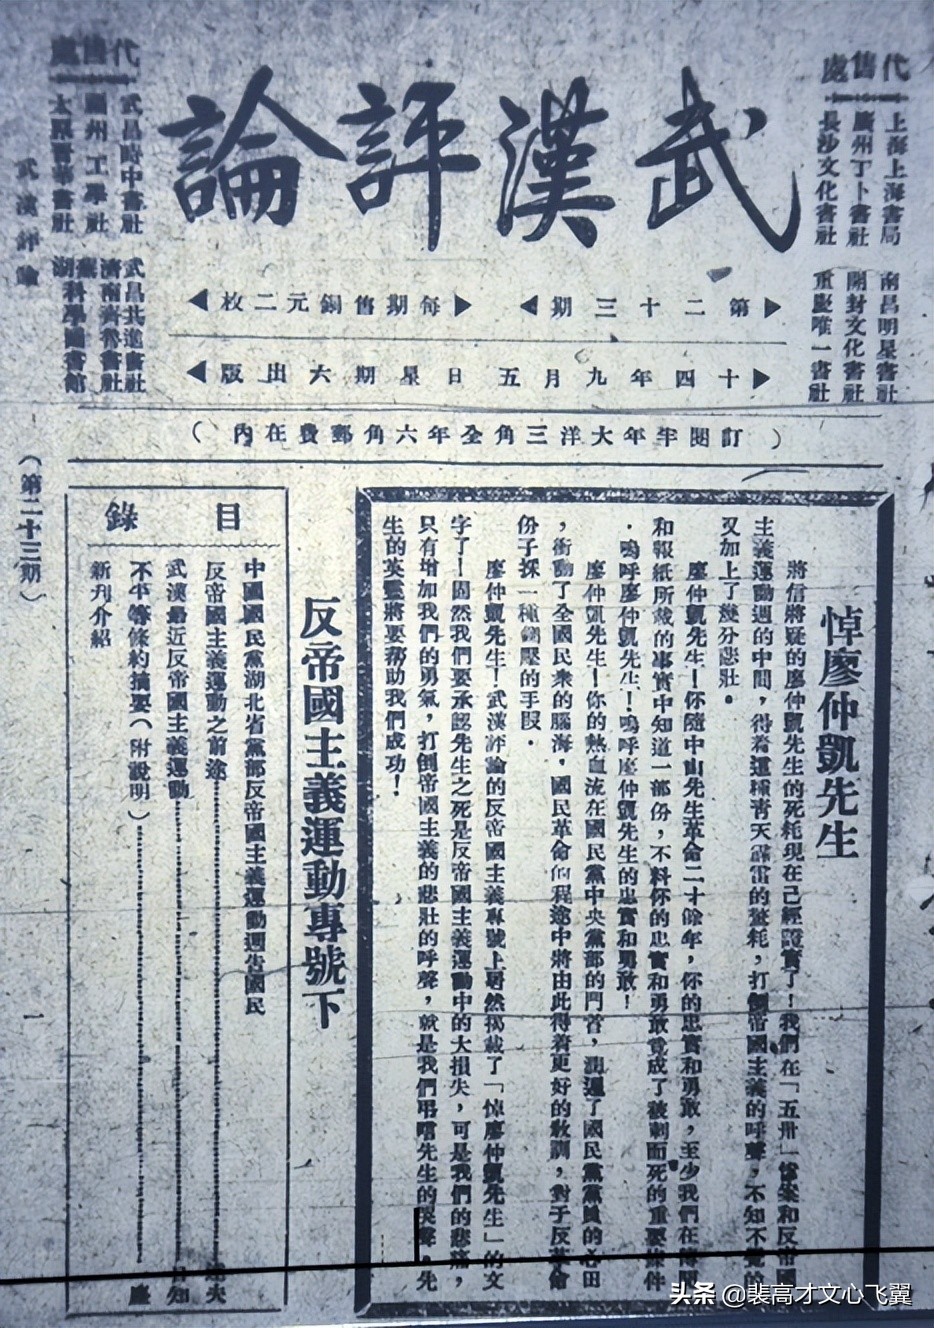 武漢評論
代售處
上海上海書局
廣州丁卜書社
長沙文化書社
南昌明星書社
開封文化書社
重慶唯一書社
代售處
武昌時中書社
蘭州工學社
太原晉華書社
武昌共進書社
濟南齊魯書社
蕪湖科學圖書館
第二十三期
每期售銅元二枚
十四年九月五日星期六出版
(訂閱半年大洋三角全年六角郵費在內)
悼廖仲凱先生
將信將疑的廖仲凱先生的死耗現在已經證實了！我們在「五卅」慘案和反帝國
主義運動週的中間，得着這種青天霹靂的噩耗，打倒帝國主義的呼聲，不知不覺的
又加上了幾分悲壯。
廖仲凱先生！你隨中山先生革命二十餘年，你的忠實和勇敢，至少我們在傳聞
和報紙所載的事實中知道一部份，不料你的忠實和勇敢竟成了被刺而死的重要條件
．嗚呼廖仲凱先生！嗚呼廖仲凱先生的忠實和勇敢！
廖仲凱先生！你的熱血流在國民黨中央黨部的門首，潤遍了國民黨黨員的心田
，衝動了全國民衆的腦海，國民革命的程途中將由此得着更好的教訓，對于反革命
份子採一種鎮壓的手段．
廖仲凱先生！武漢評論的反帝國主義專號上居然揭載了「悼廖仲凱先生」的文
字了！固然我們要承認先生之死是反帝國主義運動中的大損失，可是我們的悲痛，
只有增加我們的勇氣，打倒帝國主義的悲壯的呼聲，就是我們弔唁先生的哭聲。先
生的英靈將要帮助我們成功！
反帝國主義運動專號下
目錄
中國國民黨湖北省黨部反帝國主義運動週告國民
反帝國主義運動之前途
武漢最近反帝國主義運動
知
不平等條約摘要（附說明）
塵
新刊介紹
武漢評論
（第二十三期）
一
头条 @裴高才文心飞翼